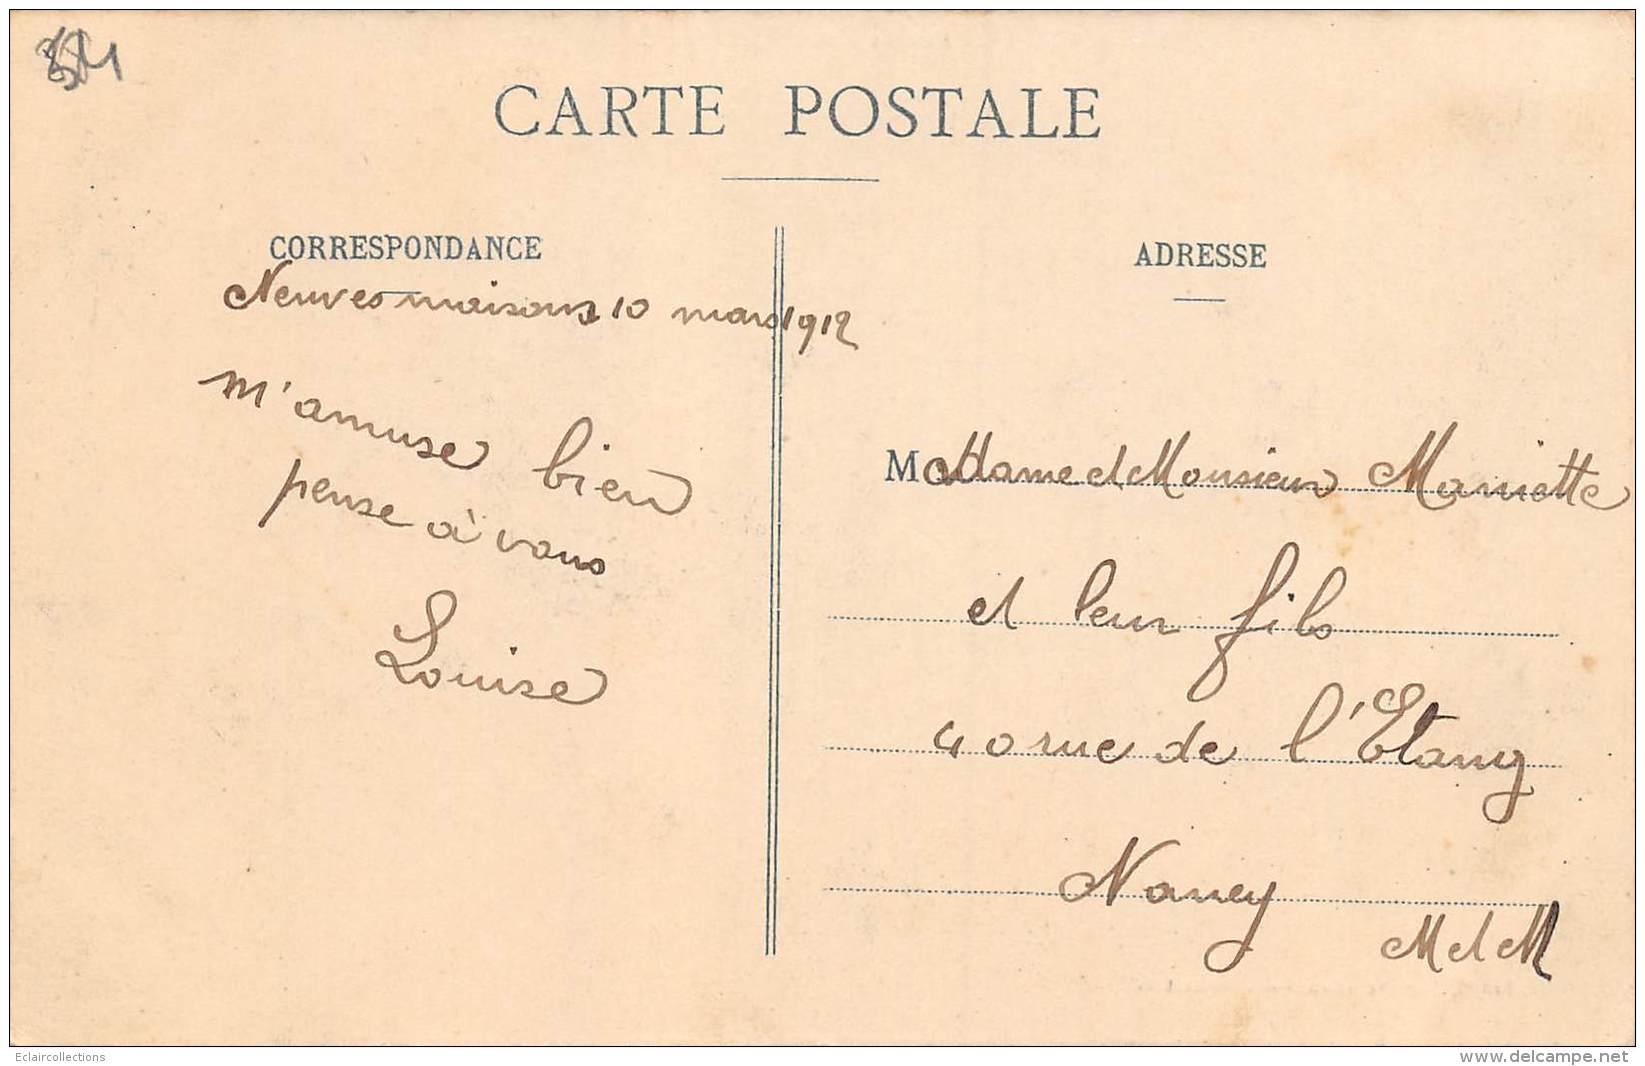 54
CARTE POSTALE
CORRESPONDANCE
Neuves maisons 10 mars 1912
m'amuse bien
pense à vous
Louise
ADRESSE
Madame et Monsieur Mariette
et leur fils
40 rue de l'Etang
Nancy
M et M
Eclaircollections
www.delcampe.net